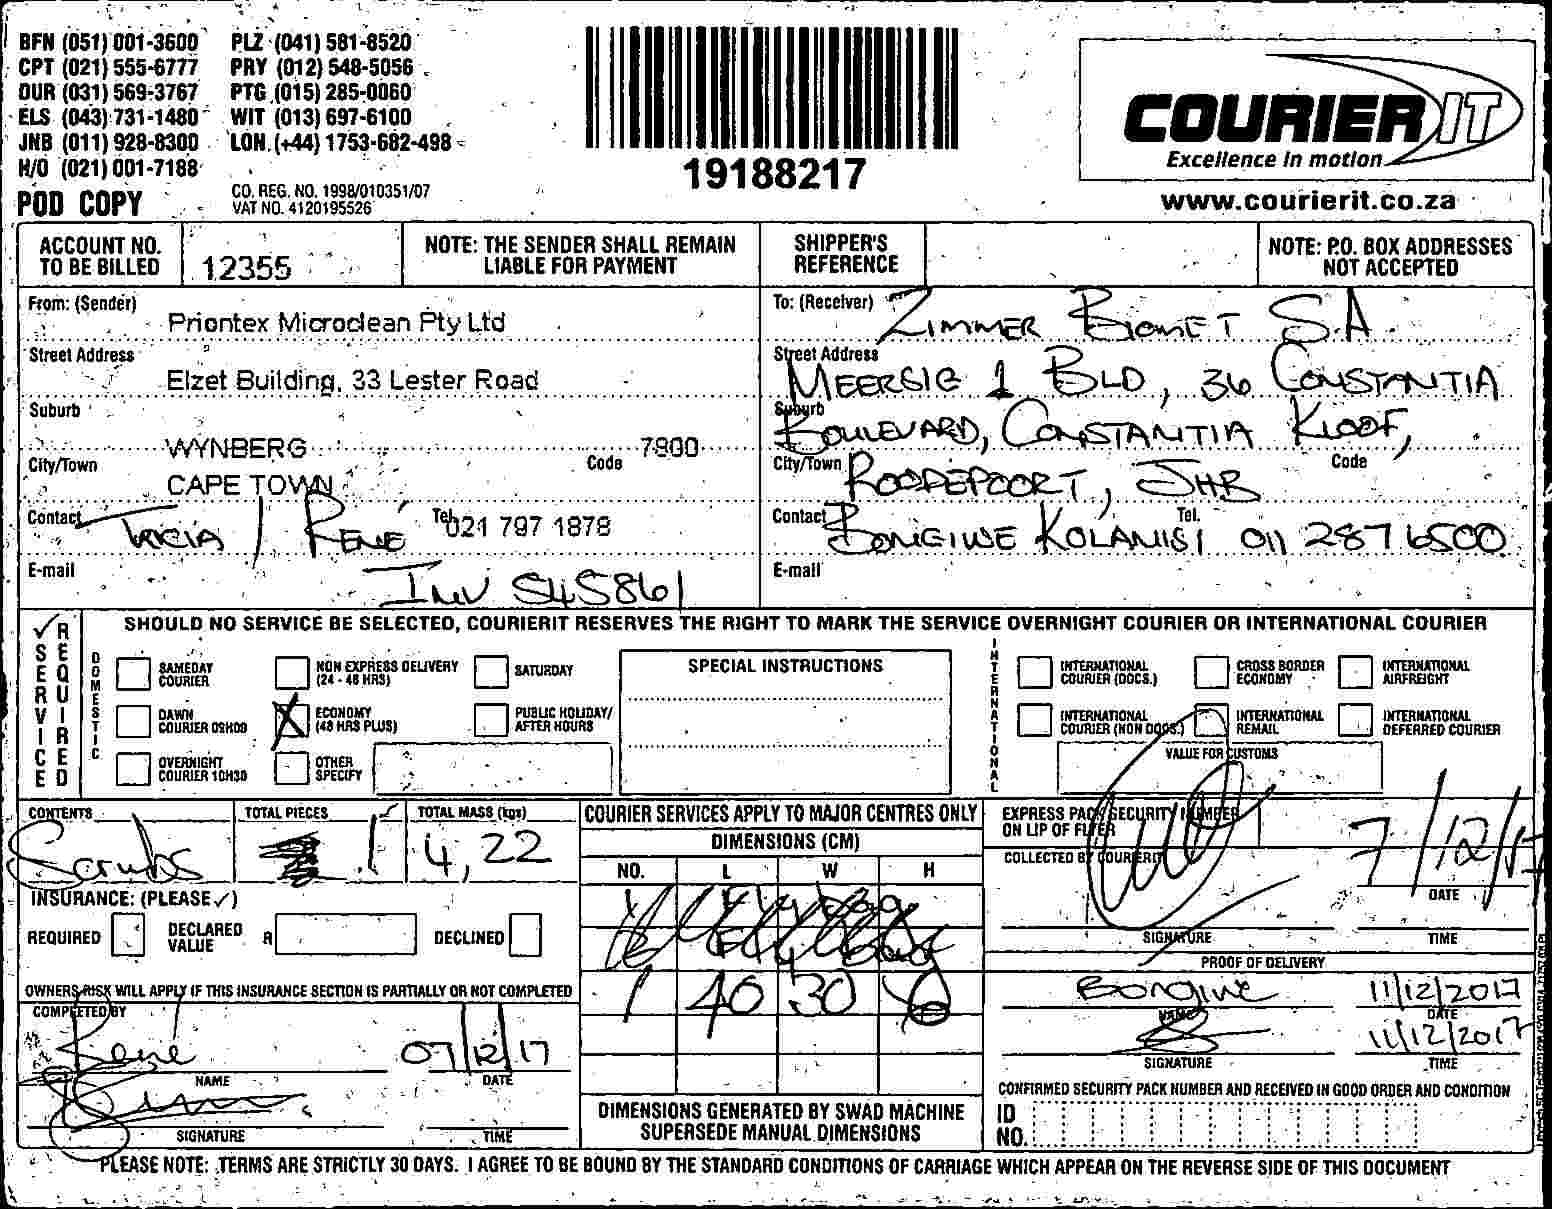 BFN (051) 001-3600 PLZ (041) 581-8520
CPT (021) 555-6777 PRY (012) 548-5056
DUR (031) 569-3767 PTG (015) 285-0060
ELS (043) 731-1480 WIT (013) 697-6100
JNB (011) 928-8300 LON. (+44) 1753-682-498
H/O (021) 001-7188
POD COPY
CO. REG. NO. 1998/010351/07
VAT NO. 4120195526
19188217
COURIER IT
Excellence in motion
www.courierit.co.za
ACCOUNT NO. TO BE BILLED
12355
NOTE: THE SENDER SHALL REMAIN LIABLE FOR PAYMENT
SHIPPER'S REFERENCE
NOTE: P.O. BOX ADDRESSES NOT ACCEPTED
From: (Sender)
Priontex Microclean Pty Ltd
Street Address
Elzet Building, 33 Lester Road
Suburb
WYNBERG
Code 7800
City/Town
CAPE TOWN
Contact TRICIA / RENÉ
Tel. 021 797 1878
E-mail
INV S45861
To: (Receiver) ZIMMER BIOMET S.A.
Street Address
MEERSIG 1 BLD, 36 CONSTANTIA
Suburb
BOULEVARD, CONSTANTIA KLOOF,
City/Town ROODEPOORT, JHB
Code
Contact BONGIWE KOLANISI
Tel. 011 287 6500
E-mail
✓ SERVICE REQUIRED
SHOULD NO SERVICE BE SELECTED, COURIERIT RESERVES THE RIGHT TO MARK THE SERVICE OVERNIGHT COURIER OR INTERNATIONAL COURIER
DOMESTIC
SAMEDAY COURIER
NON EXPRESS DELIVERY (24 - 48 HRS)
SATURDAY
DAWN COURIER 09H00
X ECONOMY (48 HRS PLUS)
PUBLIC HOLIDAY/ AFTER HOURS
OVERNIGHT COURIER 10H30
OTHER SPECIFY
SPECIAL INSTRUCTIONS
INTERNATIONAL
INTERNATIONAL COURIER (DOCS.)
CROSS BORDER ECONOMY
INTERNATIONAL AIRFREIGHT
INTERNATIONAL COURIER (NON DOCS.)
INTERNATIONAL REMAIL
INTERNATIONAL DEFERRED COURIER
VALUE FOR CUSTOMS
CONTENTS
Scrubs
TOTAL PIECES
1
TOTAL MASS (kgs)
4,22
INSURANCE: (PLEASE ✓)
REQUIRED
DECLARED VALUE R
DECLINED
OWNERS RISK WILL APPLY IF THIS INSURANCE SECTION IS PARTIALLY OR NOT COMPLETED
COMPLETED BY
René 07/12/17
NAME DATE
SIGNATURE TIME
COURIER SERVICES APPLY TO MAJOR CENTRES ONLY
DIMENSIONS (CM)
NO. L W H
1 40 30
DIMENSIONS GENERATED BY SWAD MACHINE SUPERSEDE MANUAL DIMENSIONS
EXPRESS PACK SECURITY NUMBER ON LIP OF FLYER
COLLECTED BY COURIERIT
7/12/17
DATE
SIGNATURE TIME
PROOF OF DELIVERY
Bongiwe 11/12/2017
NAME DATE
11/12/2017
SIGNATURE TIME
CONFIRMED SECURITY PACK NUMBER AND RECEIVED IN GOOD ORDER AND CONDITION
ID NO.
PLEASE NOTE: TERMS ARE STRICTLY 30 DAYS. I AGREE TO BE BOUND BY THE STANDARD CONDITIONS OF CARRIAGE WHICH APPEAR ON THE REVERSE SIDE OF THIS DOCUMENT